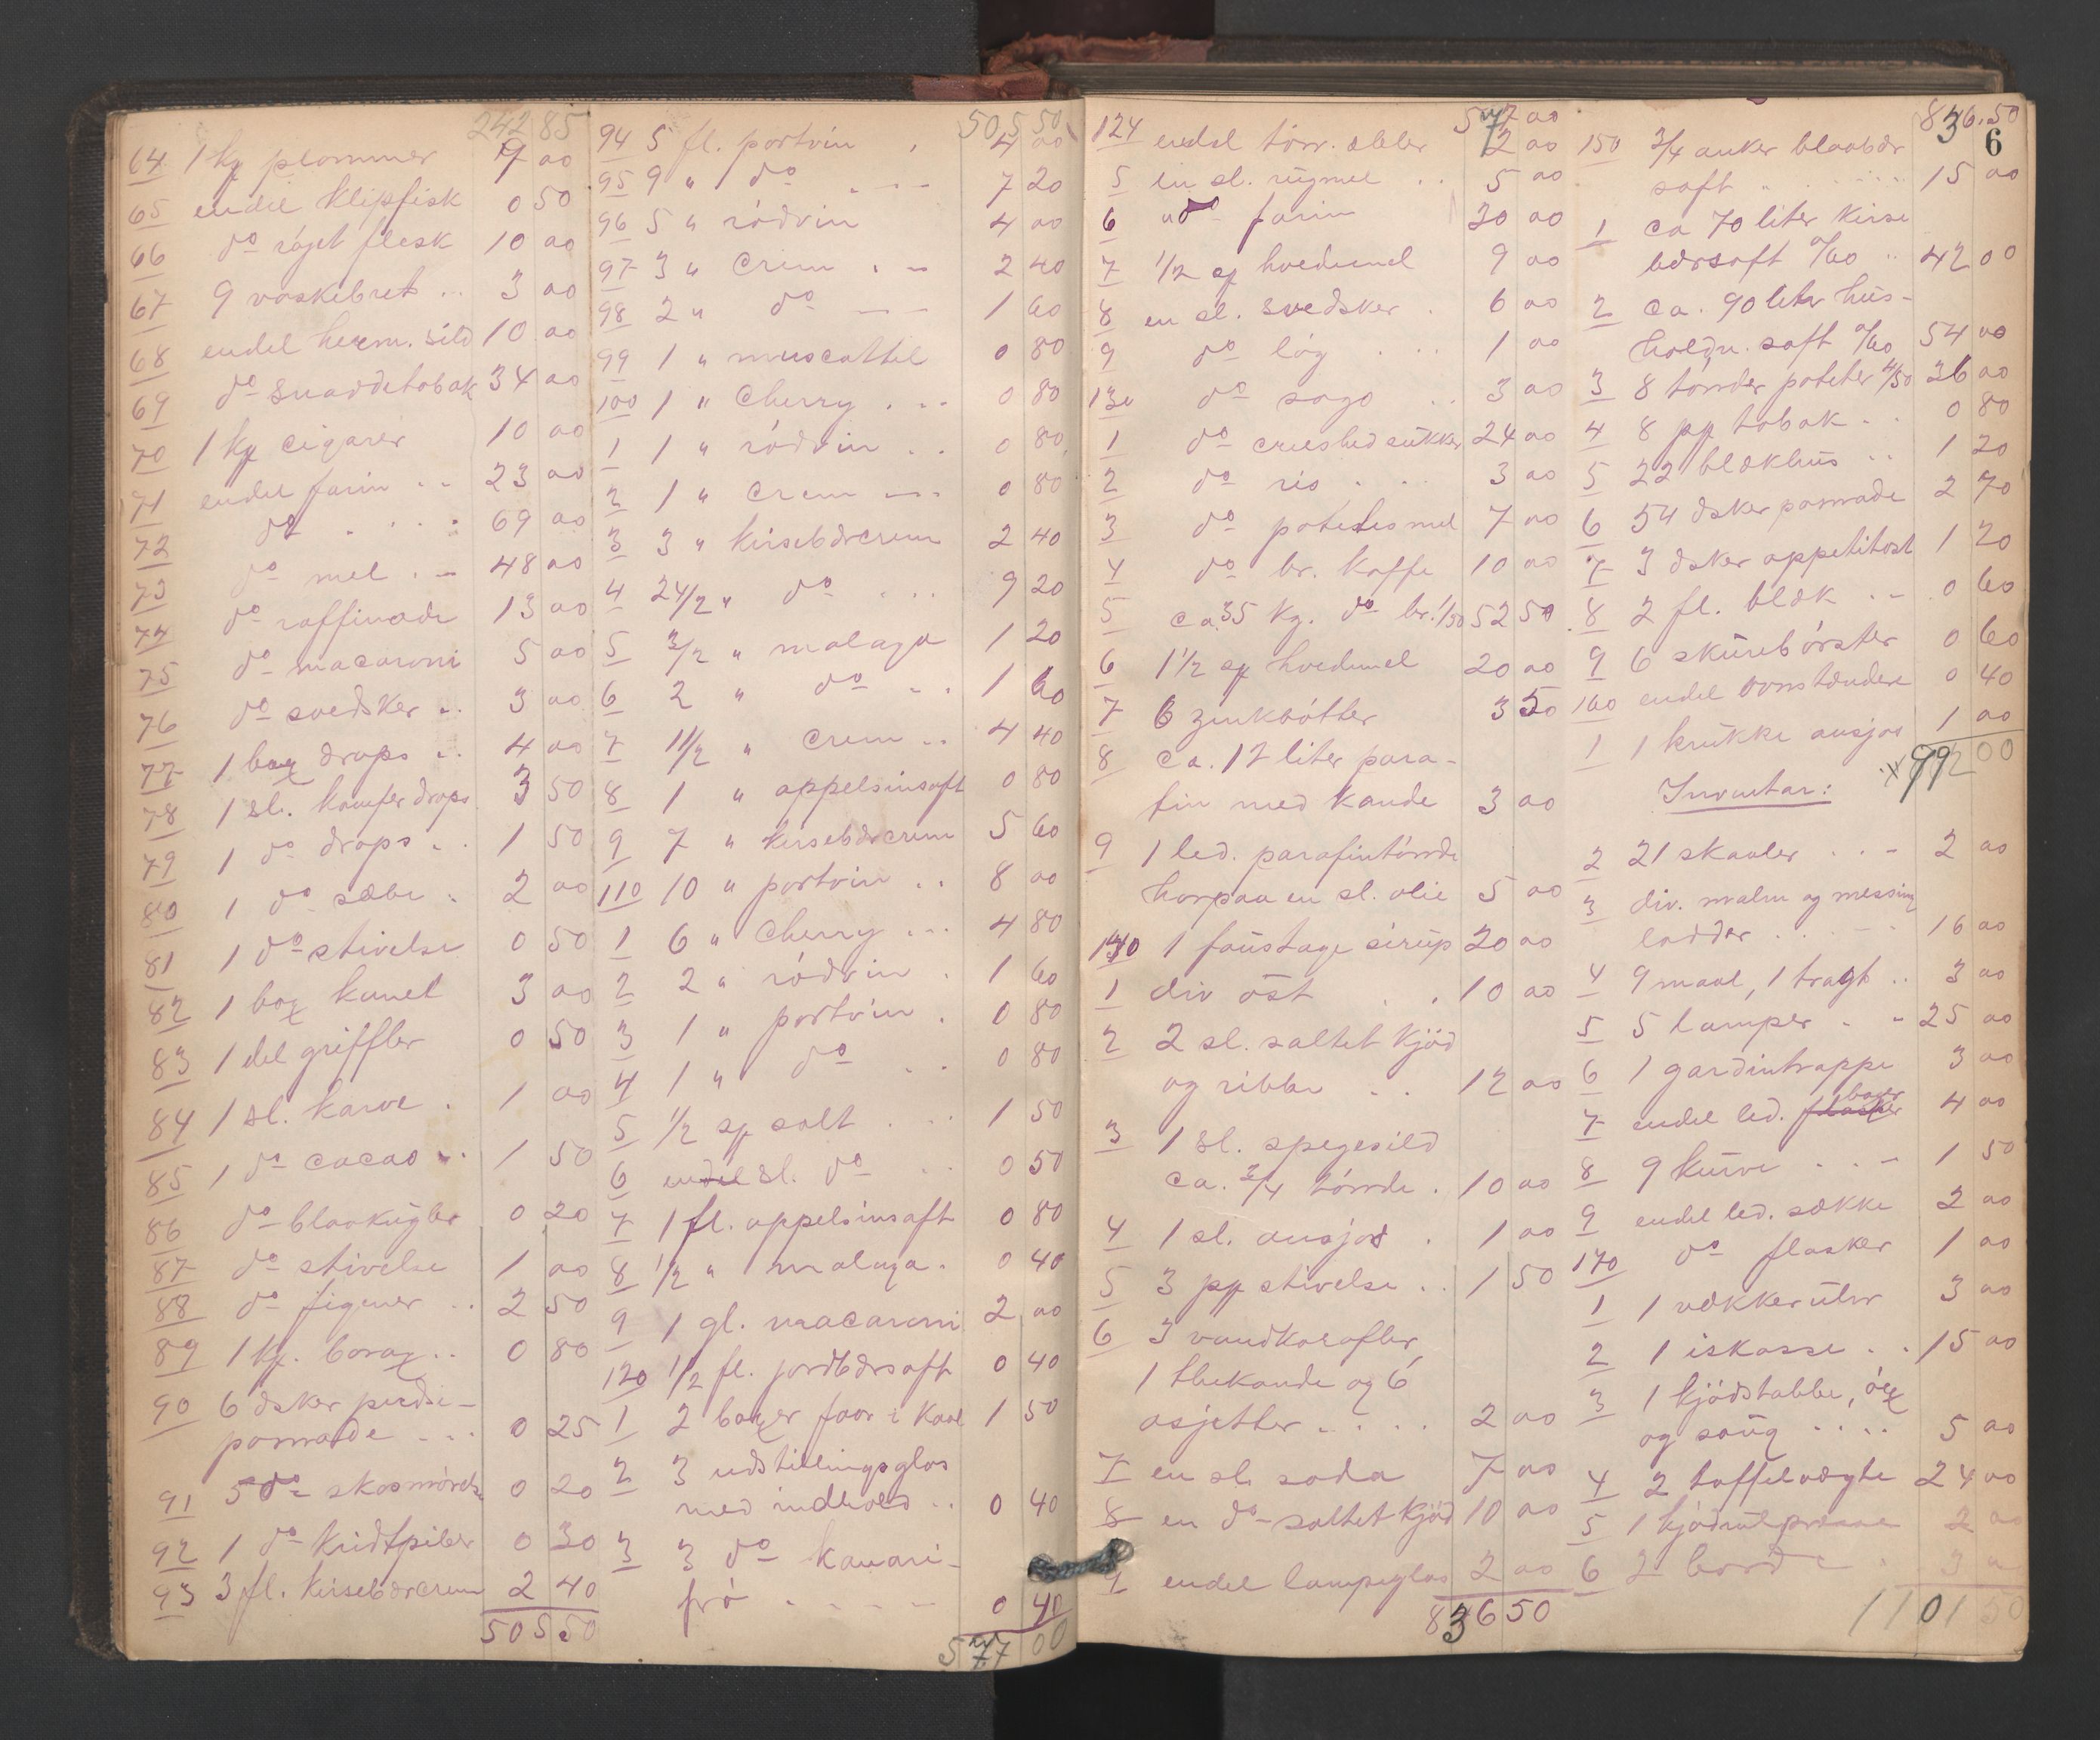 242 85
64 1 kg plommer 9 00
65 endel klipfisk 0 50
66 do röget flesk 10 00
67 9 vaskebret .. 3 00
68 endel herm. sild 10 00
69 do snaddetobak 34 00
70 1 kg cigarer 10 00
71 endel farin .. 23 00
72 do . . . . 69 00
73 do mel . – 48 00
74 do raffinade 13 00
75 do macaroni 5 00
76 do svedsker .. 3 00
77 1 box drops .. 4 00
78 1 sl. kamferdrops 3 50
79 1 do drops .. 1 50
80 1 do sæbe . 2 00
81 1 do stivelse 0 50
82 1 box kanel 3 00
83 1 del griffler 0 50
84 1 sl. karve . 1 00
85 1 do cacao .. 1 50
86 do blaakugler 0 20
87 do stivelse 1 00
88 do figener .. 2 50
89 1 kg. borax .. 0 80
90 6 dsker pudse-
pomade ... 0 25
91 5 do skosmörelse 0 20
92 1 do kridtpiber 0 30
93 3 fl. kirsebærcrem 2 40
505 50
505 50
94 5 fl. portvin . 4 00
95 9 " do . – – 7 20
96 5 " rödvin 4 00
97 3 " Crem . – 2 40
98 2 " do – – 1 60
99 1 " muscattel 0 80
100 1 " Cherry . .. 0 80
1 1 " rödvin .. 0 80
2 1 " Crem – .. 0 80
3 3 " kirsebærcrem 2 40
4 24/2 " do ... 9 20
5 3/2 " malaga 1 20
6 2 " do .. 1 60
7 11/2 " Crem .. 4 40
8 1 " appelsinsaft 0 80
9 7 " kirsebærcrem 5 60
110 10 " portvin .. 8 00
1 6 " Cherry ... 4 80
2 2 " rödvin . 1 60
3 1 " portvin . 0 80
4 1 " do .. 0 80
5 1/2 sp salt ... 1 50
6 endel sl. do .. 0 50
7 1 fl. appelsinsaft 0 80
8 1/2 " malaga . 0 40
9 1 gl. macaroni 2 00
120 1/2 fl. jordbærsaft 0 40
1 2 boxer faar i kaal 1 50
2 3 udstillingsglas
med indhold .. 0 40
3 3 do kanari-
frö . – – – – 0 40
577 00
577 00
124 endel törr. æbler 2 00
5 en sl. rugmel .. 5 00
6 " do farin 30 00
7 1/2 sp hvedemel 9 00
8 en sl. svedsker . 6 00
9 do lög ... 1 00
130 do sago .. 3 00
1 do crushed sukker 24 00
2 do ris . . . 3 00
3 do potetesmel 7 00
4 do br. kaffe 10 00
5 ca. 35 kg. do br. 1/50 52 50
6 1 1/2 sp hvedemel 20 00
7 6 zinkbötter 3 50
8 ca. 12 liter para-
fin med kande 3 00
9 1 led. parafintönde
hvorpaa en sl. olie 5 00
140 1 faustage sirup 20 00
1 div ost . . 10 00
2 2 sl. saltet kjöd
og ribbe .. 12 00
3 1 sl. spegesild
ca. 3/4 tönde . 10 00
4 1 sl. ansjos . 1 00
5 3 pp stivelse .. 1 50
6 3 vandkarafler,
1 thekande og 6
asjetter .... 2 00
7 en sl. soda 7 00
8 en do saltet kjöd 10 00
9 endel lampeglas 2 00
836 50
836.50
6
150 3/4 anker blaabær
saft " . ..... 15 00
1 ca 70 liter kirse
bærsaft a/60 .. 42 00
2 ca. 90 liter hus-
holdn. saft a/60 54 00
3 8 tönder poteter 4/50 36 00
4 8 pp tobak .. 0 80
5 22 blækhus .. 1 20
6 54 dsker pomade 2 70
7 3 dsker appetitost 1 20
8 2 fl. blæk .. 0 60
9 6 skurebörster 0 60
160 endel ovnstændere 0 40
1 1 krukke ansjos 1 00
992 00
Inventar:
2 21 skaaler . . – 2 00
3 div. malm og messing
lodder . . . – – 16 00
4 9 maal, 1 tragt .. 3 00
5 5 lamper . – 25 00
6 1 gardintrappe 3 00
7 endel led. flasker boxer 4 00
8 9 kurve . . . – 1 50
9 endel led. sække 2 00
170 do flasker 1 00
1 1 vækkerulur 3 00
2 1 iskasse . . 15 00
3 1 kjödstabbe, öx
og saug .... 5 00
4 2 taffelvægte 24 00
5 1 kjödrulpresse 2 00
6 2 borde . 3 00
1101 50